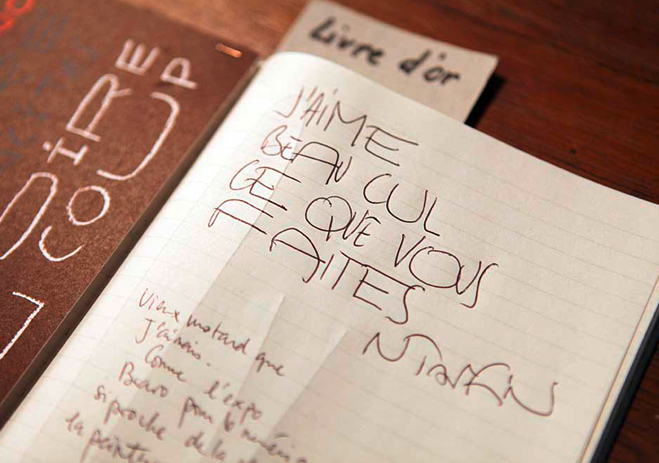 Livre d'or
DIRE
COUP
J'AIME
BEAU CUL
CE QUE VOUS
FAITES
Vieux motard que
J'aimais.
Comme l'expo
Bravo pour le
si proche de la
la peinture